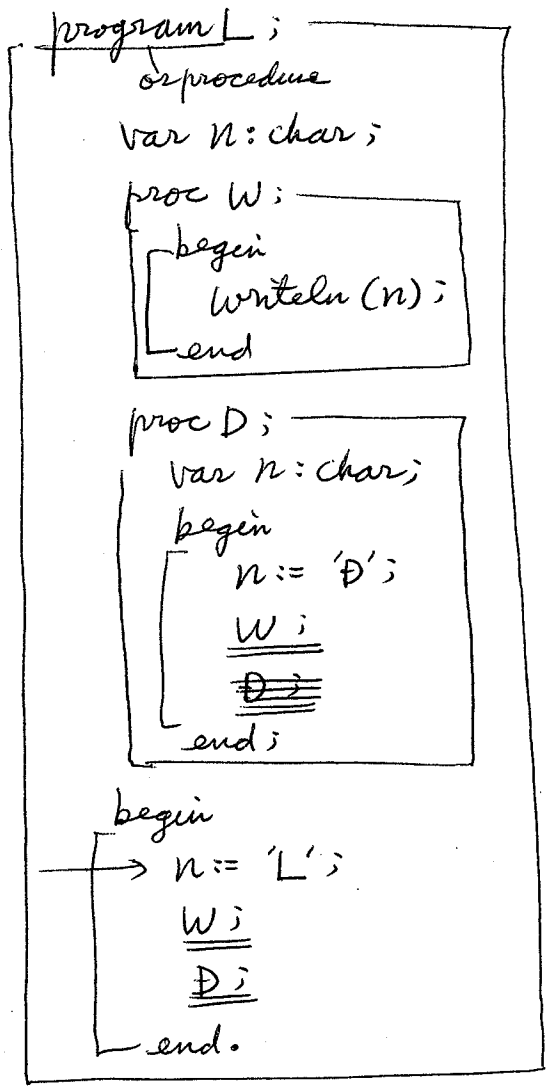 program L;
or procedure
var n: char;
proc W;
begin
writeln (n);
end
proc D;
var n: char;
begin
n := 'D';
W;
D;
end;
begin
n := 'L';
W;
D;
end.